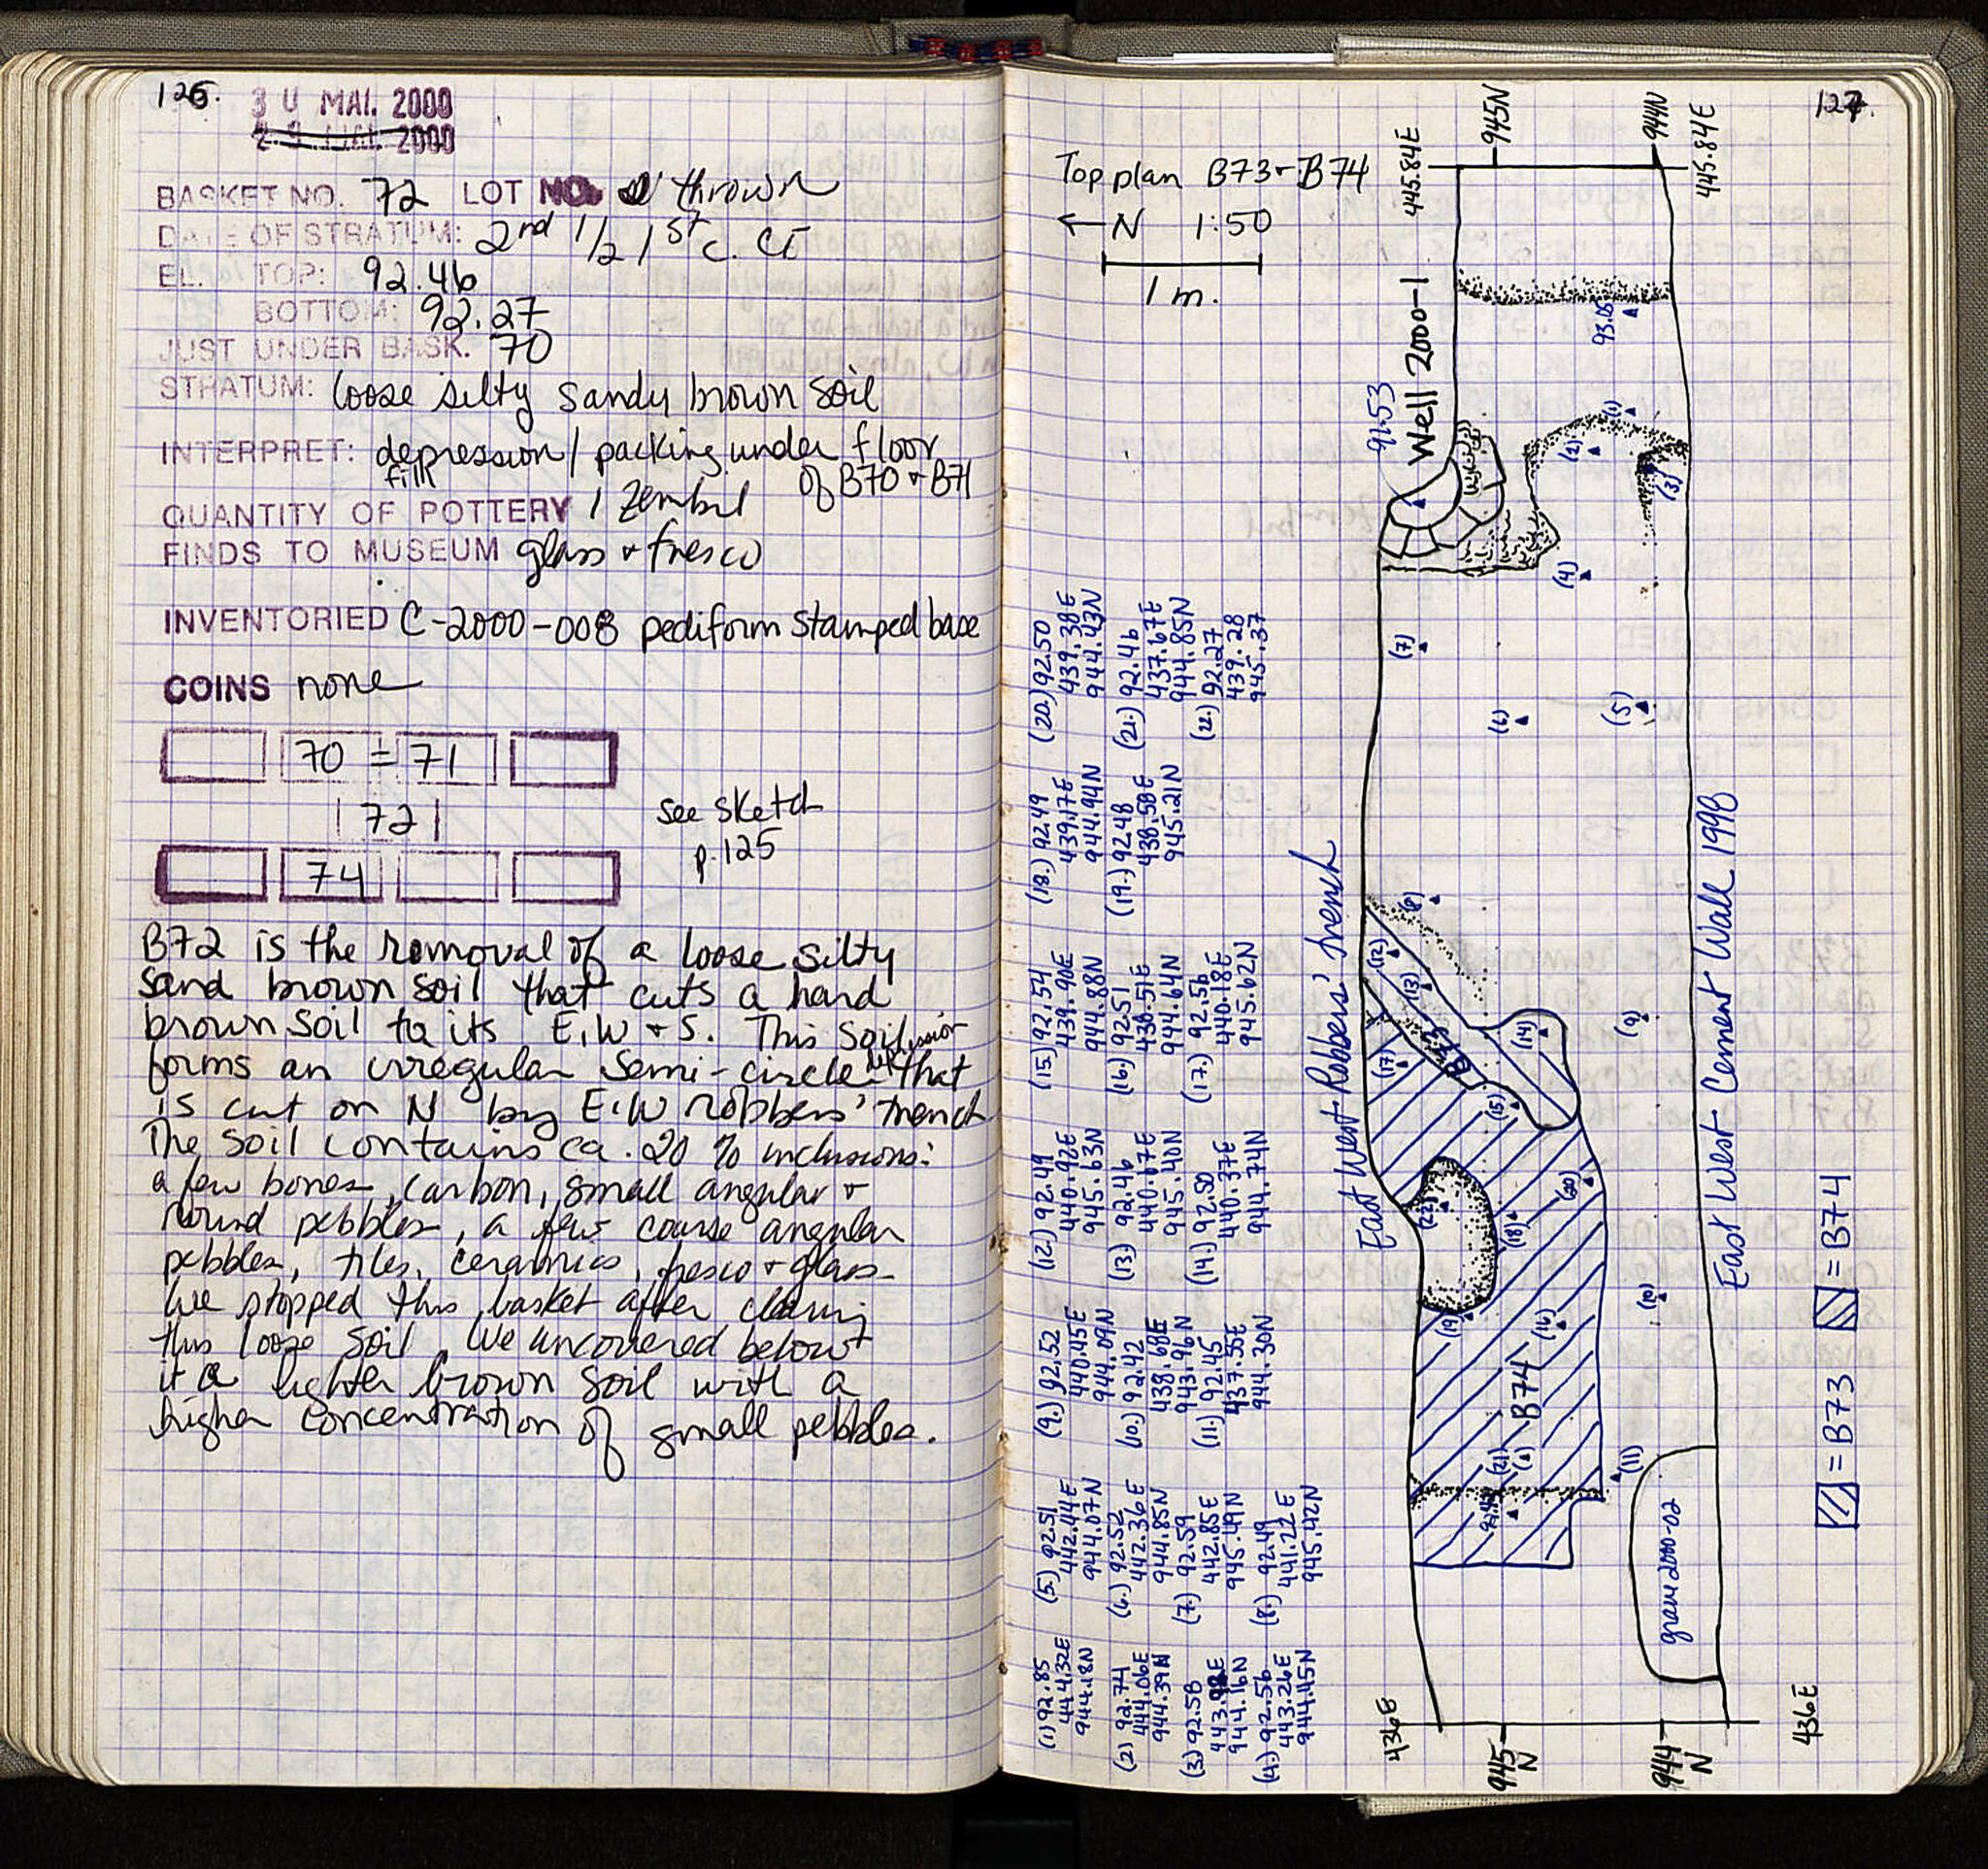 126.
30 MAI. 2000
2000
BASKET NO. 72 LOT NO. thrown
DATE OF STRATUM: 2nd 1/2 1st c. CE
EL. TOP: 92.46
BOTTOM: 92.27
JUST UNDER BASK. 70
STRATUM: loose silty sandy brown soil
INTERPRET: depression / packing under floor
fill of B70 + B71
QUANTITY OF POTTERY 1 zembil
FINDS TO MUSEUM glass + fresco
INVENTORIED C-2000-008 pediform stamped base
COINS none
70 = 71
72
74
see sketch
p.125
B72 is the removal of a loose silty
sand brown soil that cuts a hard
brown soil to its E, W + S. This soil
forms an irregular semi-circle depression that
is cut on N by E-W robbers' trench
The soil contains ca. 20 % inclusions:
a few bones, carbon, small angular +
round pebbles, a few coarse angular
pebbles, tiles, ceramics, fresco + glass
We stopped this basket after
this loose soil. We uncovered below
it a lighter brown soil with a
higher concentration of small pebbles.
127.
Top plan B73 + B74
←N 1:50
1 m.
445.84E
945N
944N
445.84E
93.05
Well 2000-1
91.53
(1)
(2)
(3)
(4)
(5)
(6)
(7)
(8)
(9)
(10)
(11)
(12)
(13)
(14)
(15)
(16)
(17)
(18)
(19)
(20)
(21)
(22)
B73
B74
East West Robbers' Trench
East West Cement Wall 1998
grave 2000-02
436E
945
N
944
N
436E
= B73
= B74
(1) 92.85
444.32E
944.18N
(2) 92.74
444.06E
944.39N
(3) 92.58
944.16N
(4.) 92.56
443.26E
944.45N
(5.) 92.51
442.44E
944.07N
(6.) 92.52
442.36E
944.85N
(7.) 92.59
442.85E
945.49N
(8.) 92.49
441.22E
945.42N
(9.) 92.52
440.45E
944.09N
(10.) 92.42
438.68E
943.96N
(11.) 92.45
437.55E
944.30N
(12.) 92.49
440.92E
945.63N
(13.) 92.46
440.67E
945.40N
(14.) 92.50
440.37E
944.74N
(15.) 92.54
439.90E
944.88N
(16.) 92.51
438.51E
944.64N
(17.) 92.56
440.18E
945.62N
(18.) 92.49
439.17E
944.94N
(19.) 92.48
438.58E
945.21N
(20.) 92.50
439.38E
944.43N
(21.) 92.46
437.67E
944.85N
(22.) 92.27
439.28
945.37